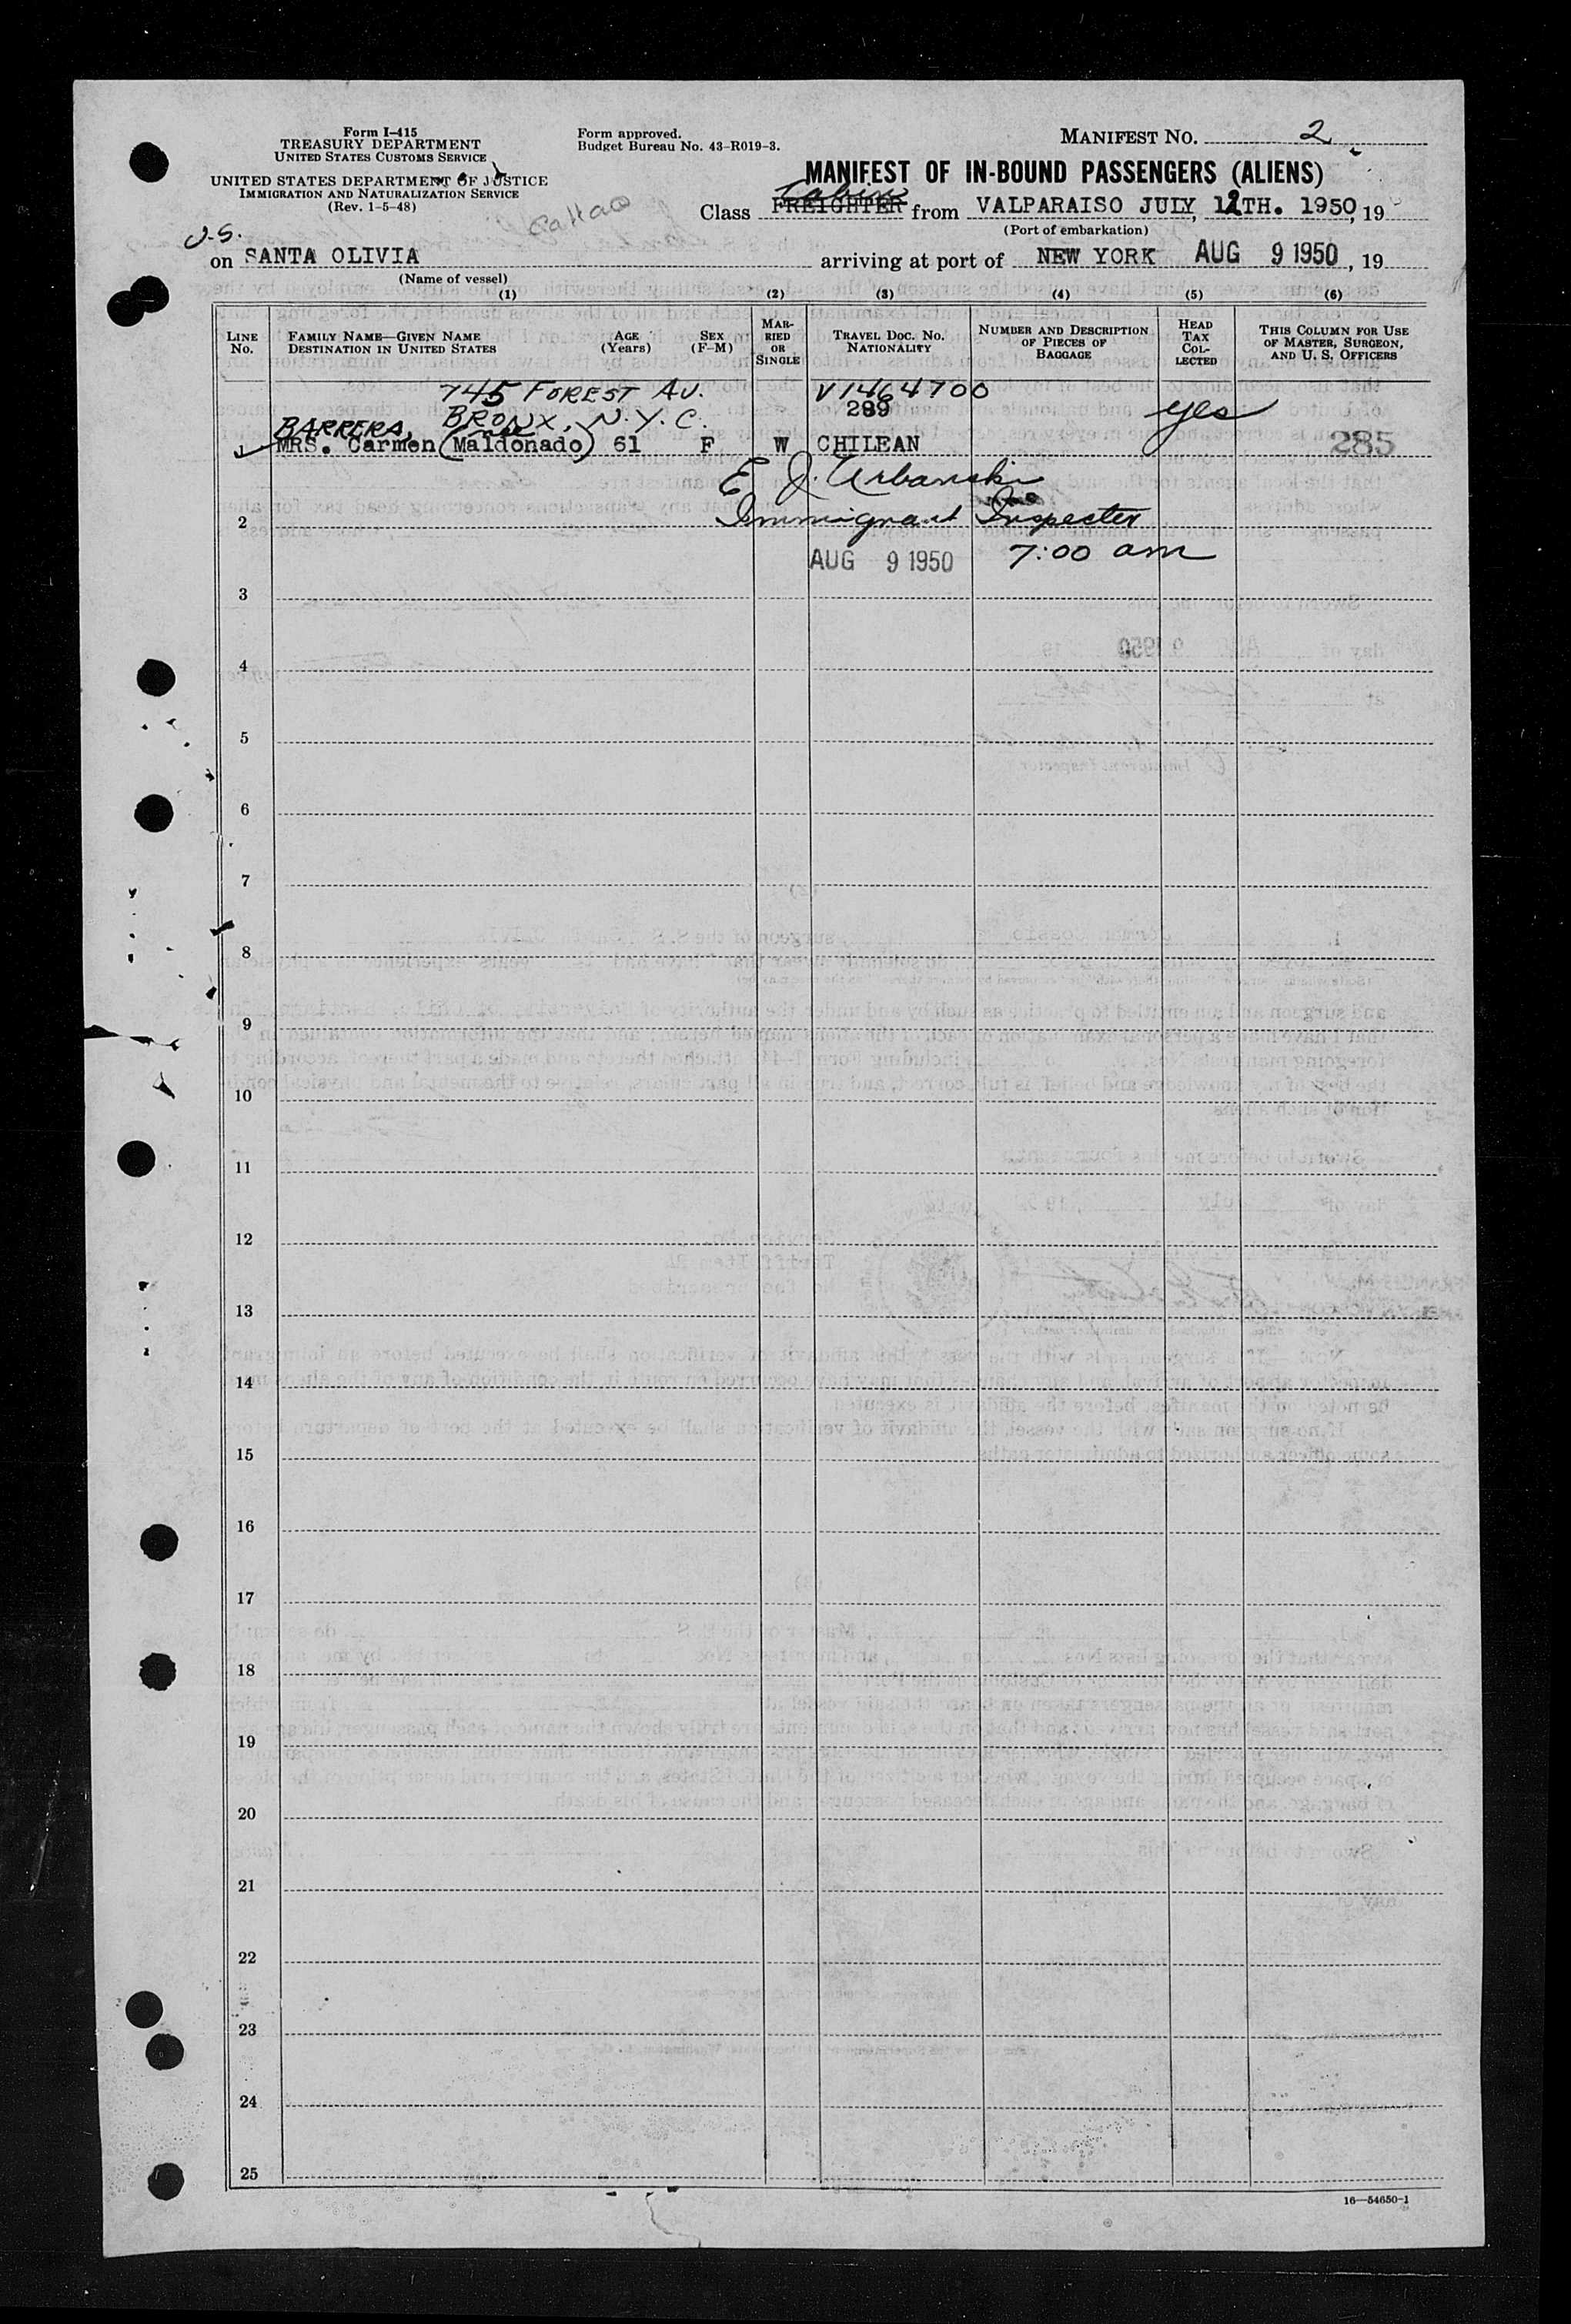 Form I-415
TREASURY DEPARTMENT
UNITED STATES CUSTOMS SERVICE
UNITED STATES DEPARTMENT OF JUSTICE
IMMIGRATION AND NATURALIZATION SERVICE
(Rev. 1-5-48)
Form approved.
Budget Bureau No. 43-R019-3.
MANIFEST NO. 2
MANIFEST OF IN-BOUND PASSENGERS (ALIENS)
Cabin
Class FREIGHTER from VALPARAISO JULY, 12TH. 1950, 19
(Port of embarkation)
Callao
U.S.
on SANTA OLIVIA arriving at port of NEW YORK AUG 9 1950, 19
(Name of vessel)
(1) (2) (3) (4) (5) (6)
LINE No.
FAMILY NAME—GIVEN NAME
DESTINATION IN UNITED STATES
AGE (Years)
SEX (F-M)
MARRIED OR SINGLE
TRAVEL DOC. NO.
NATIONALITY
NUMBER AND DESCRIPTION OF PIECES OF BAGGAGE
HEAD TAX COLLECTED
THIS COLUMN FOR USE OF MASTER, SURGEON, AND U. S. OFFICERS
745 FOREST AV. V1464700
BRONX, N.Y.C. 289 yes
BARRERA,
1 MRS. Carmen (Maldonado) 61 F W CHILEAN 285
E J. Urbanski
2 Immigrant Inspector
AUG 9 1950 7:00 am
3
4
5
6
7
8
9
10
11
12
13
14
15
16
17
18
19
20
21
22
23
24
25
16—54650-1